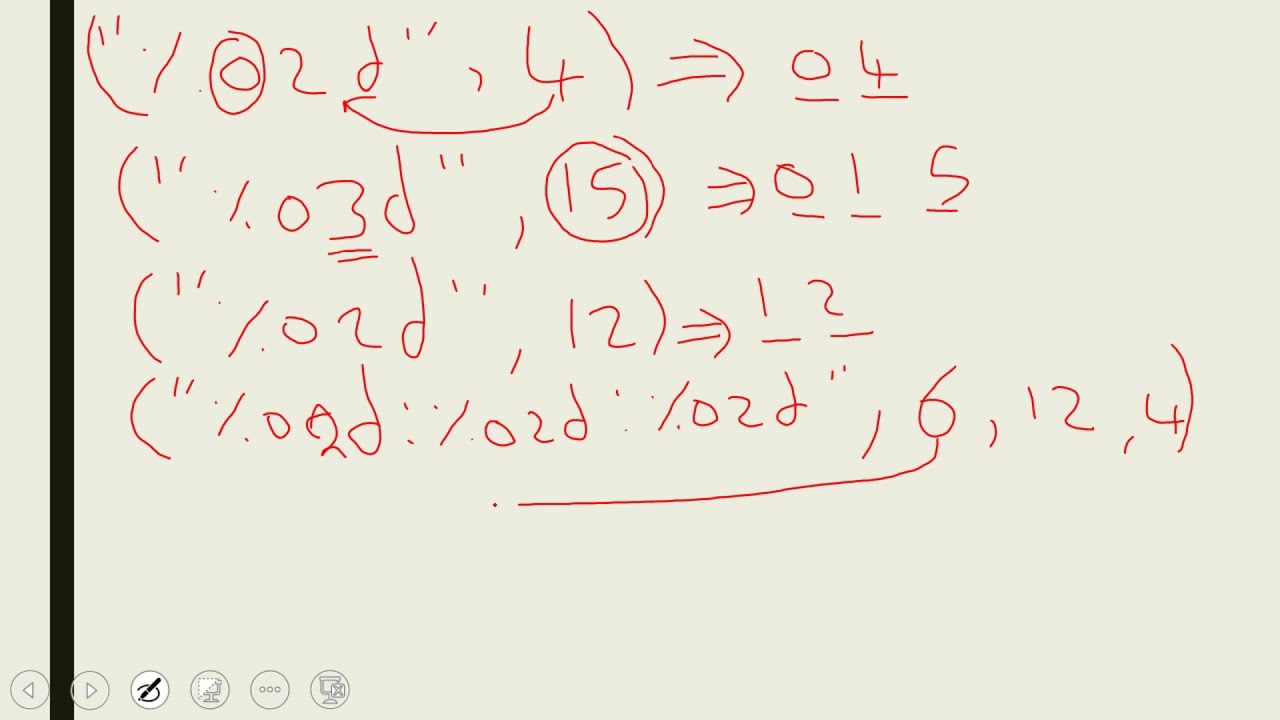 ("%02d", 4) ⇒ 04
("%03d", 15) ⇒ 015
("%02d", 12) ⇒ 12
("%02d:%02d:%02d", 6, 12, 4)